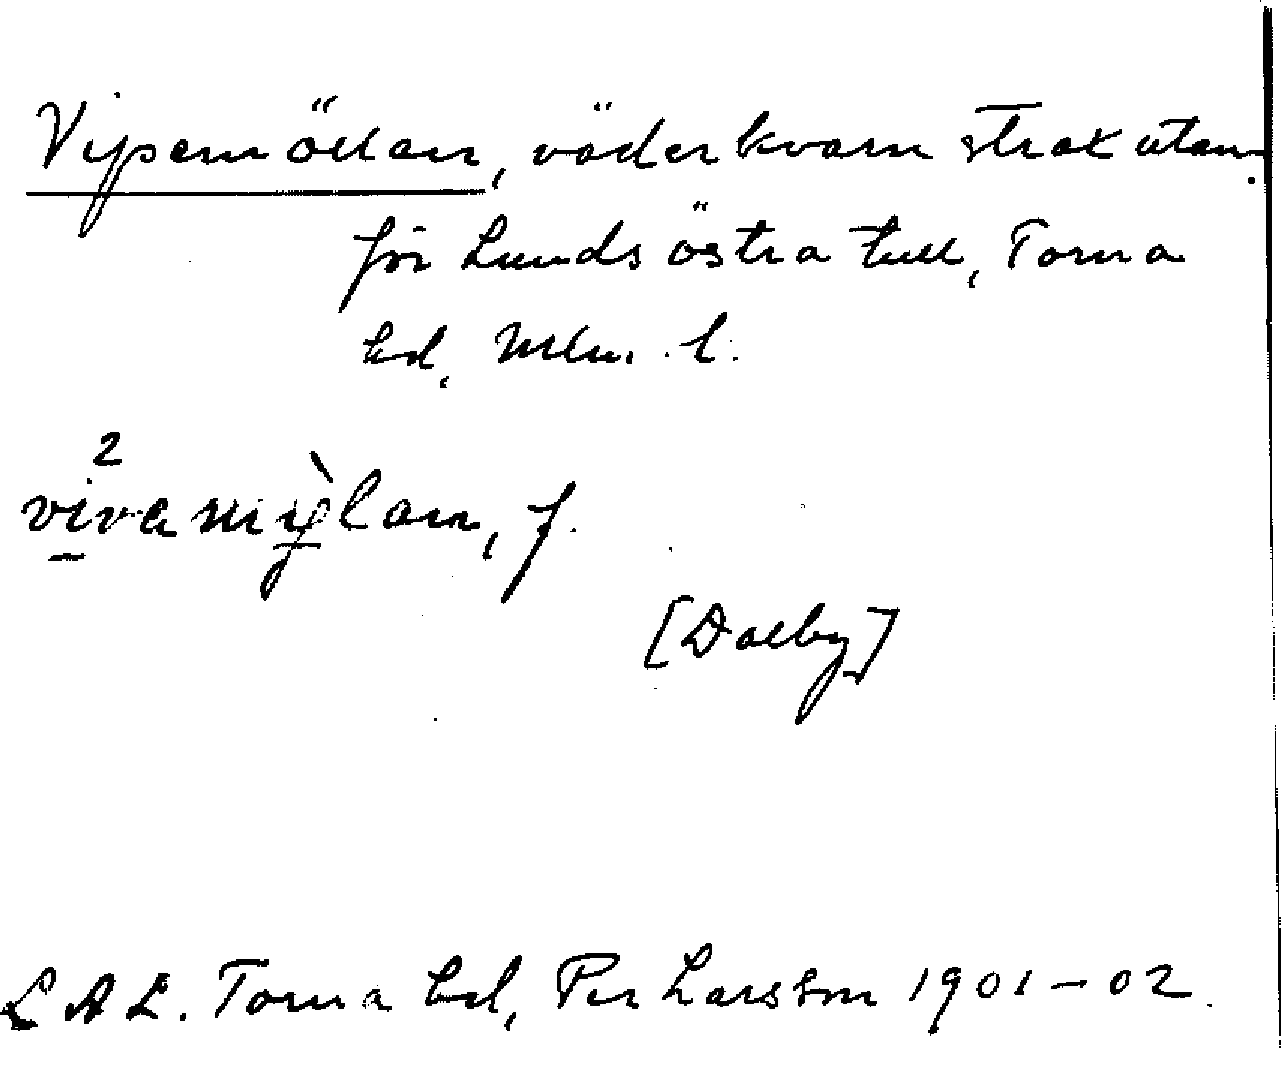 Vipemöllan, väderkvarn strax utan-
för Lunds östra tull, Torna
hd, Mlm. l.
2
vivamø̀lan, f.
[Dalby]
LAL. Torna hd, Per Larsson 1901–02.